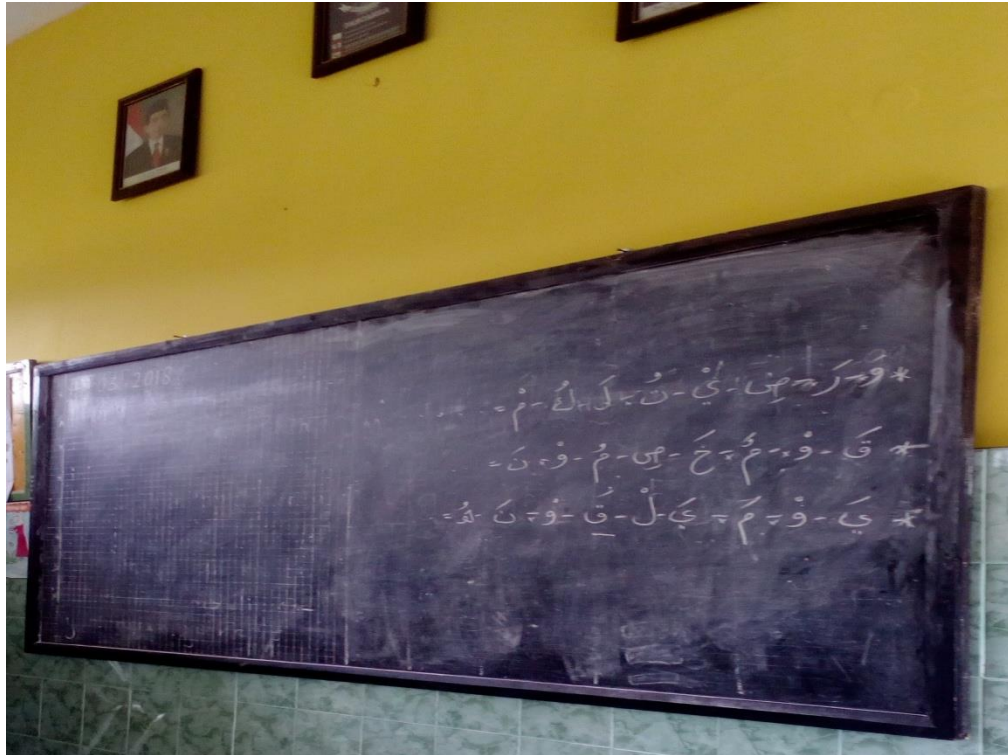 2018
* وَ - رَ - ضِ - يْ - تُ - لَ - كُ - مْ =
* قَ - وْ - مٌ - خَ - صِ - مُ - وْ - نَ =
* يَ - وْ - مَ - يَ - لْ - قَ - وْ - نَ - هُ =